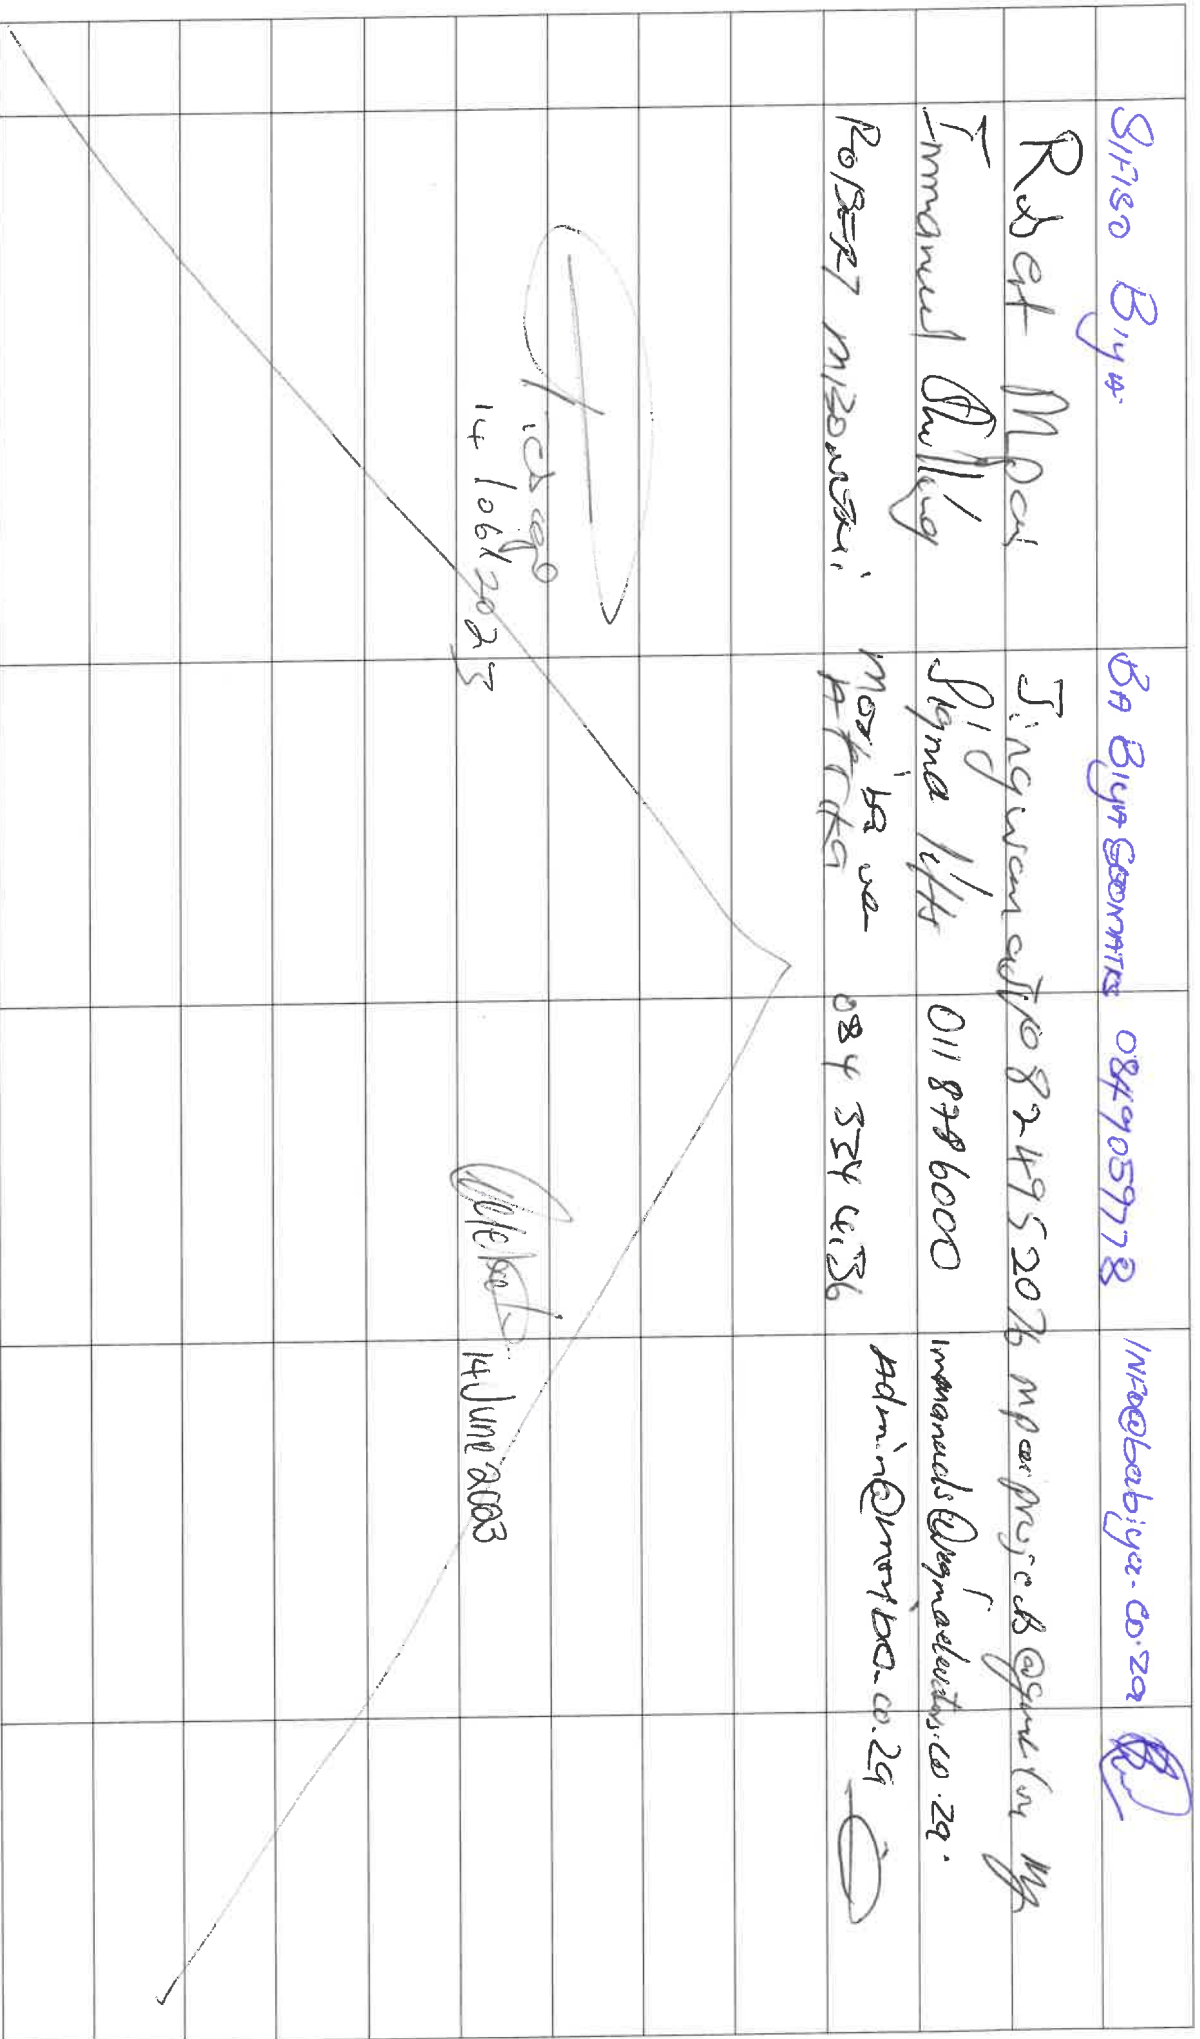 SIFISO BIYA BA BIYA GEOMATICS 0849059778 INFO@babiya.co.za
Robert Mpai 0824952076 mpaiprojects@gmail.com
Immanuel Shilling Sigma lifts 011 878 6000 immanuels@sigmaelevators.co.za.
ROBERT Moxiba wa 084 354 4536 Admin@moxiba.co.za
AFRIKA
14/06/2023
14 June 2023